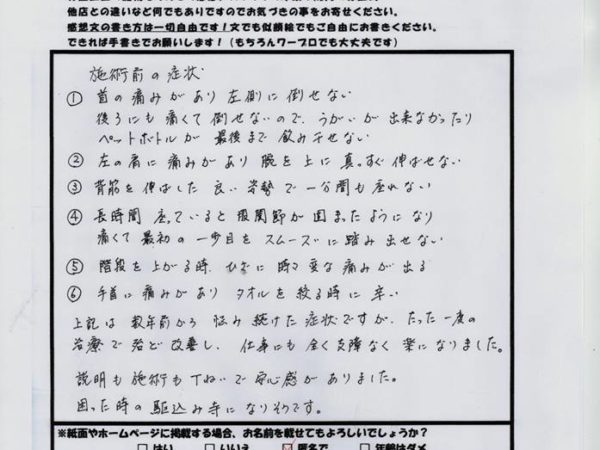 他店との違いなど何でもありですのでお気づきの事をお寄せください。
感想文の書き方は一切自由です！文でも似顔絵でもご自由にお書きください。
できれば手書きでお願いします！（もちろんワープロでも大丈夫です）
施術前の症状
① 首の痛みがあり左側に倒せない
後ろにも痛くて倒せないので、うがいが出来なかったり
ペットボトルが最後まで飲み干せない
② 左の肩に痛みがあり腕を上に真っすぐ伸ばせない
③ 背筋を伸ばした良い姿勢で一分間も座れない
④ 長時間座っていると股関節が固まったようになり
痛くて最初の一歩目をスムーズに踏み出せない
⑤ 階段を上がる時、ひざに時々変な痛みが出る
⑥ 手首に痛みがありタオルを絞る時に辛い
上記は数年前から悩み続けた症状ですが、たった一度の
治療で殆ど改善し、仕事にも全く支障なく楽になりました。
説明も施術も丁ねいで安心感がありました。
困った時の駆込み寺になりそうです。
※紙面やホームページに掲載する場合、お名前を載せてもよろしいでしょうか？
はい いいえ 匿名で 年齢はダメ